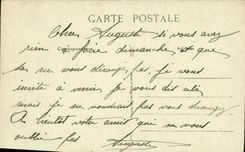 CARTE POSTALE
Cher Auguste si vous avez
rien à faire dimanche et que
sa ne vous dérange pas, je vous
invite à venir je vous
mais je ne voudrais pas vous déranger
A bientôt votre ami qui ne vous
oublie pas
Auguste